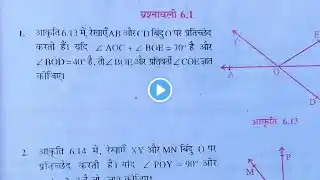 प्रश्नावली 6.1
1. आकृति 6.13 में, रेखाएँ AB और CD बिंदु O पर प्रतिच्छेद
करती हैं। यदि ∠AOC + ∠BOE = 70° है और
∠BOD = 40° है, तो ∠BOE और प्रतिवर्ती ∠COE ज्ञात
कीजिए।
E
A
O
आकृति 6.13
2. आकृति 6.14 में, रेखाएँ XY और MN बिंदु O पर
प्रतिच्छेद करती हैं। यदि ∠POY = 90° और
M P
है, तो c ज्ञात कीजिए।